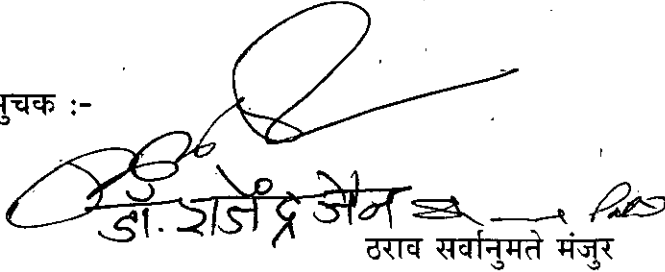 सुचक :-
डॉ. राजेंद्र जैन
ठराव सर्वानुमते मंजुर